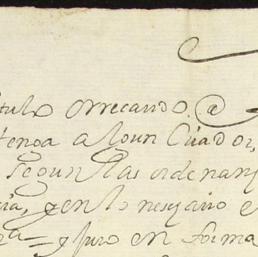 titulo o rrecando. @
tenga algun Criador,
segun las ordenan
cia, y en lo nesçario e
= y juro en forma